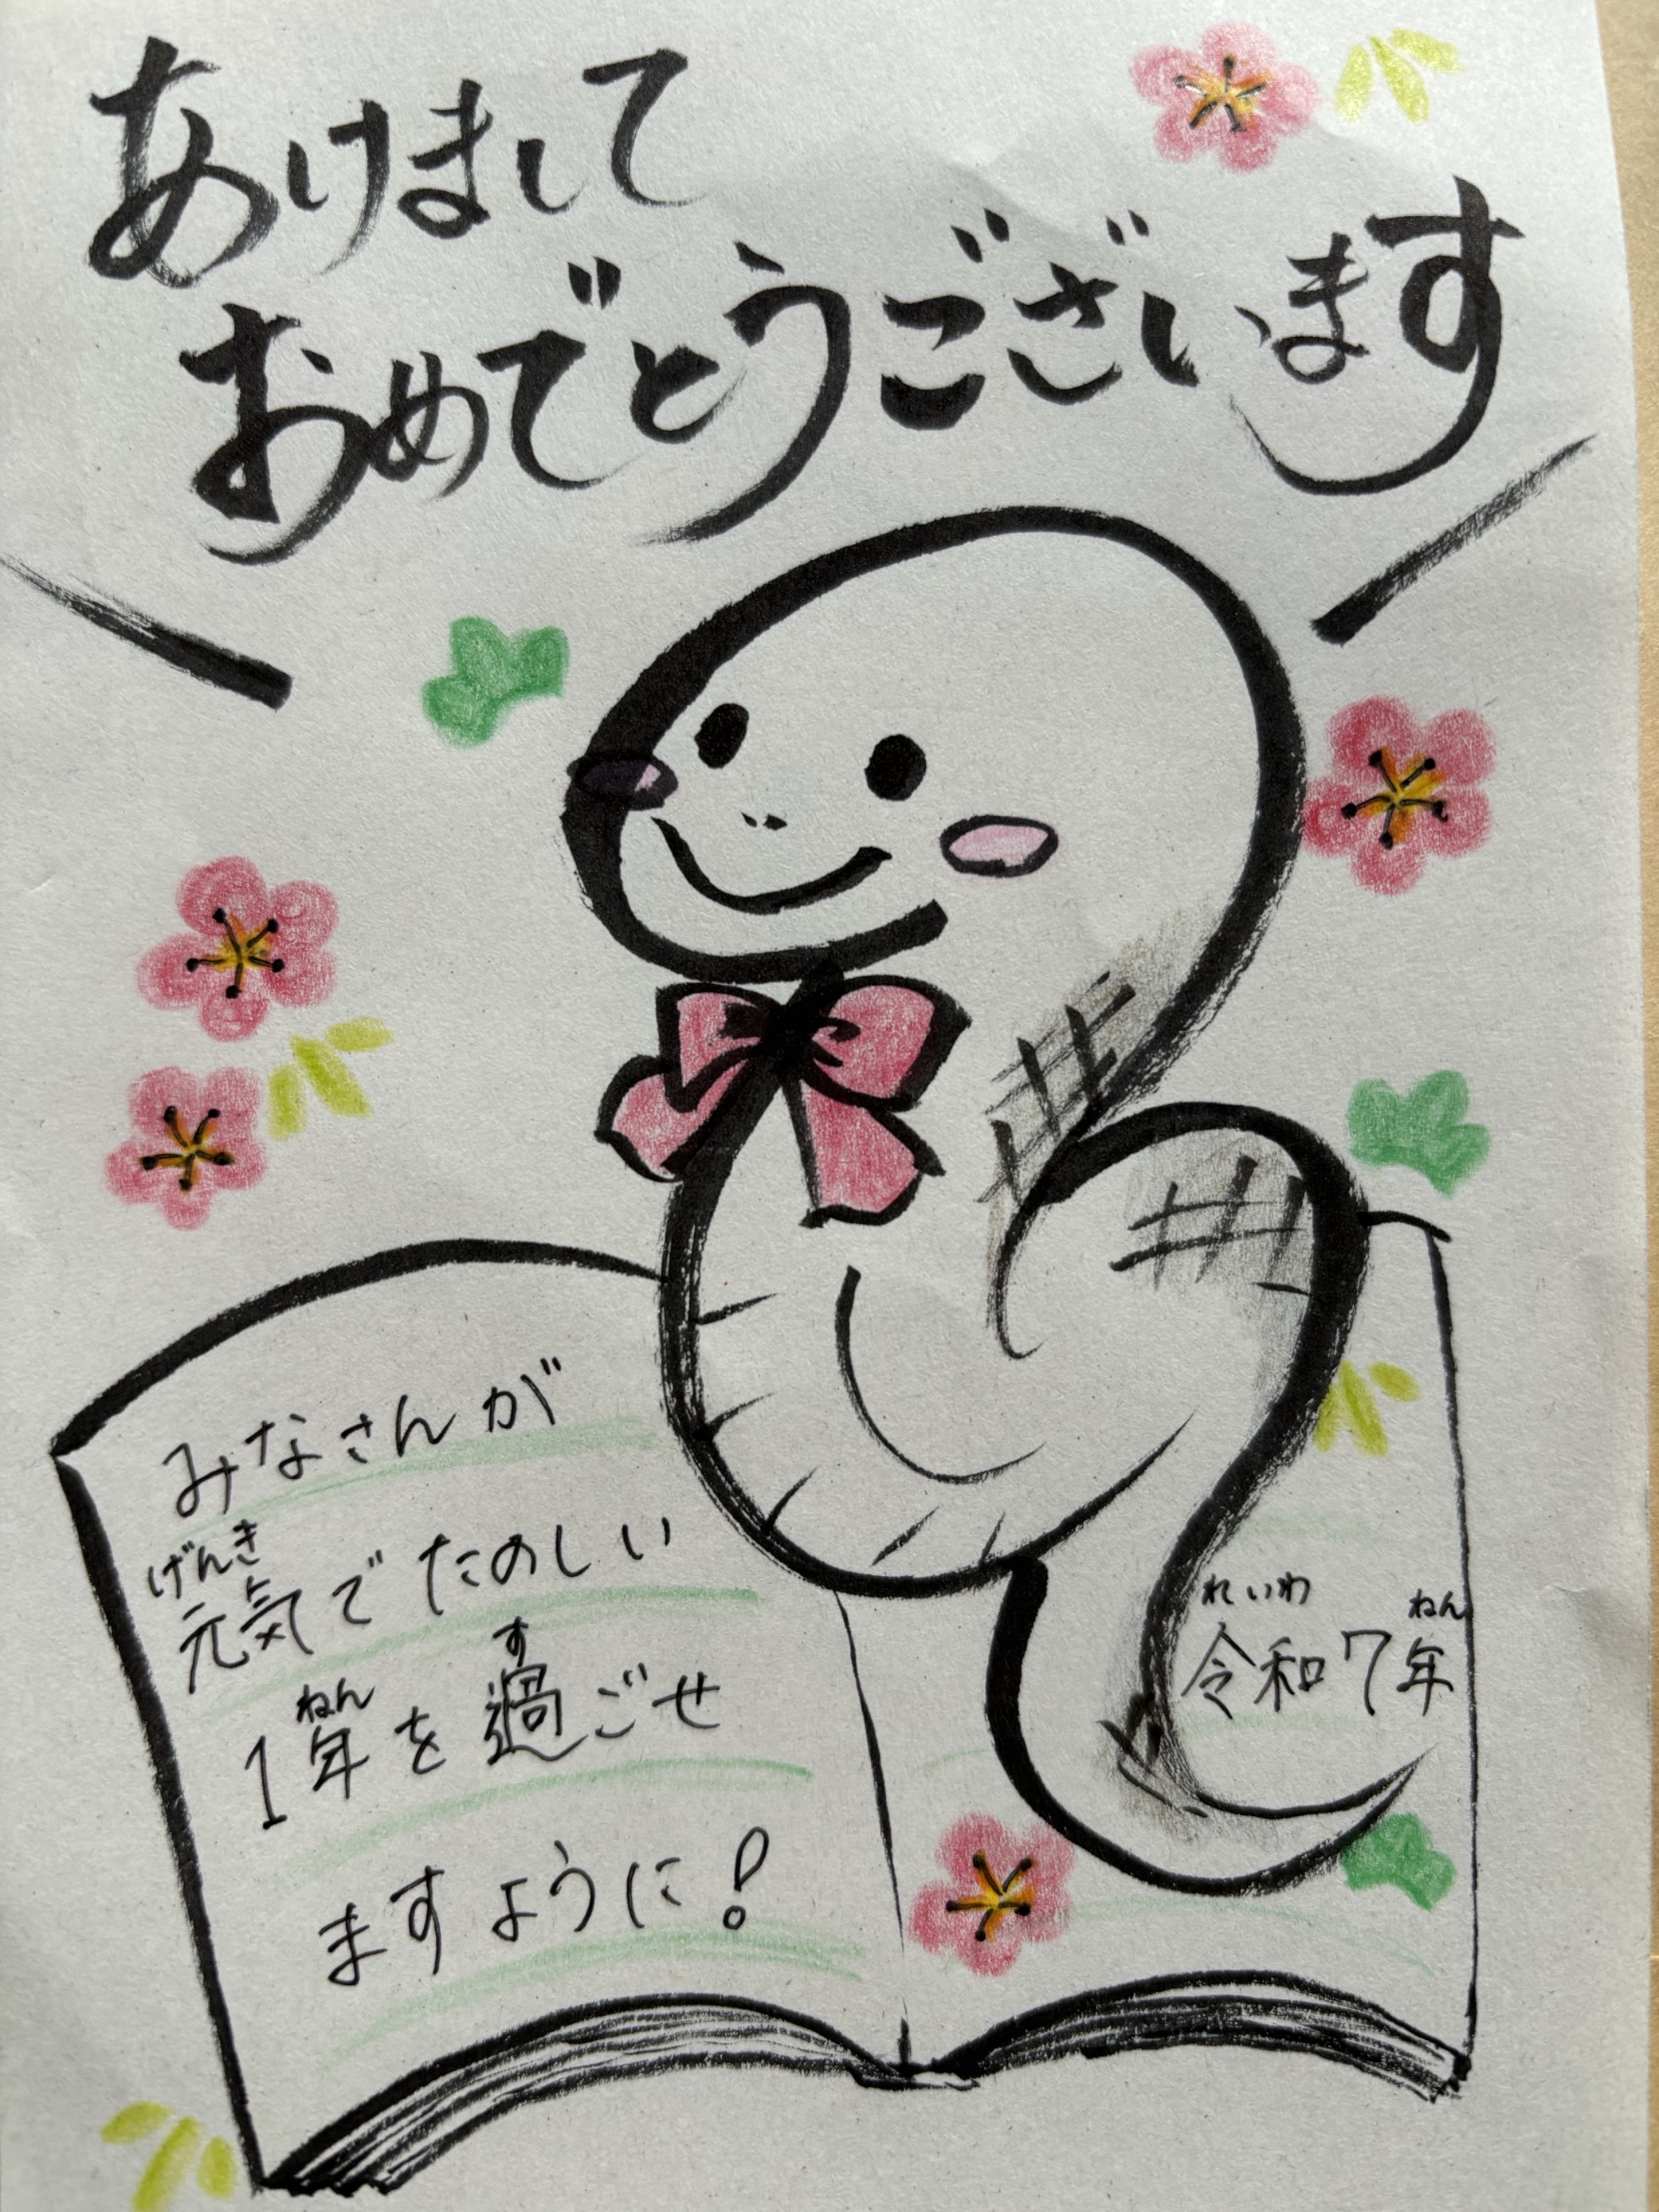 あけまして
おめでとうございます
みなさんが
げんき
元気でたのしい
ねん す
1年を過ごせ
ますように!
れいわ ねん
令和7年